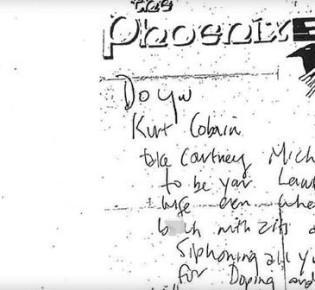 the
Phoenix
Do you
Kurt Cobain
take Courtney Mich
to be your Law
even whe
b ch with zits
siphoning all y
for Doping and